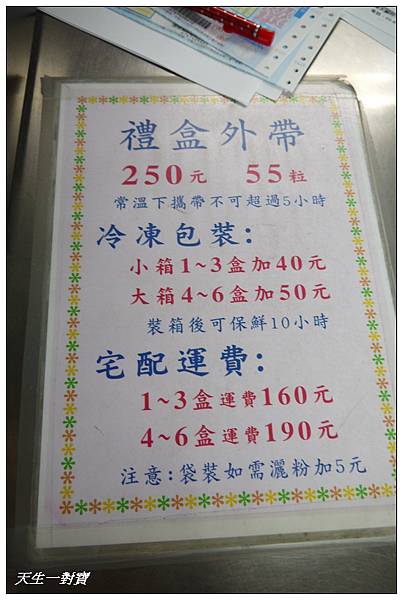 禮盒外帶
250元 55粒
常溫下攜帶不可超過5小時
冷凍包裝:
小箱1~3盒加40元
大箱4~6盒加50元
裝箱後可保鮮10小時
宅配運費:
1~3盒運費160元
4~6盒運費190元
注意:袋裝如需灑粉加5元
天生一對寶